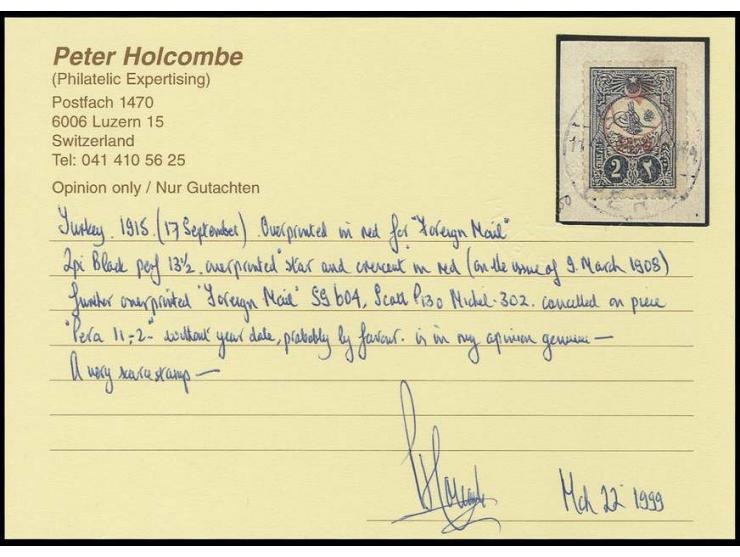 Peter Holcombe
(Philatelic Expertising)
Postfach 1470
6006 Luzern 15
Switzerland
Tel: 041 410 56 25
Opinion only / Nur Gutachten
Turkey. 1915. (17 September). Overprinted in red for "Foreign Mail"
2pi Black perf 13½. overprinted "star and crescent" in red (on the issue of 9. March 1908)
further overprinted "Foreign Mail" SG 604, Scott P130 Michel. 302. cancelled on piece
"Pera 11-2-" without year date, probably by favour. is in my opinion genuine —
A very scarce stamp —
Mch 22 1999
2 ٢